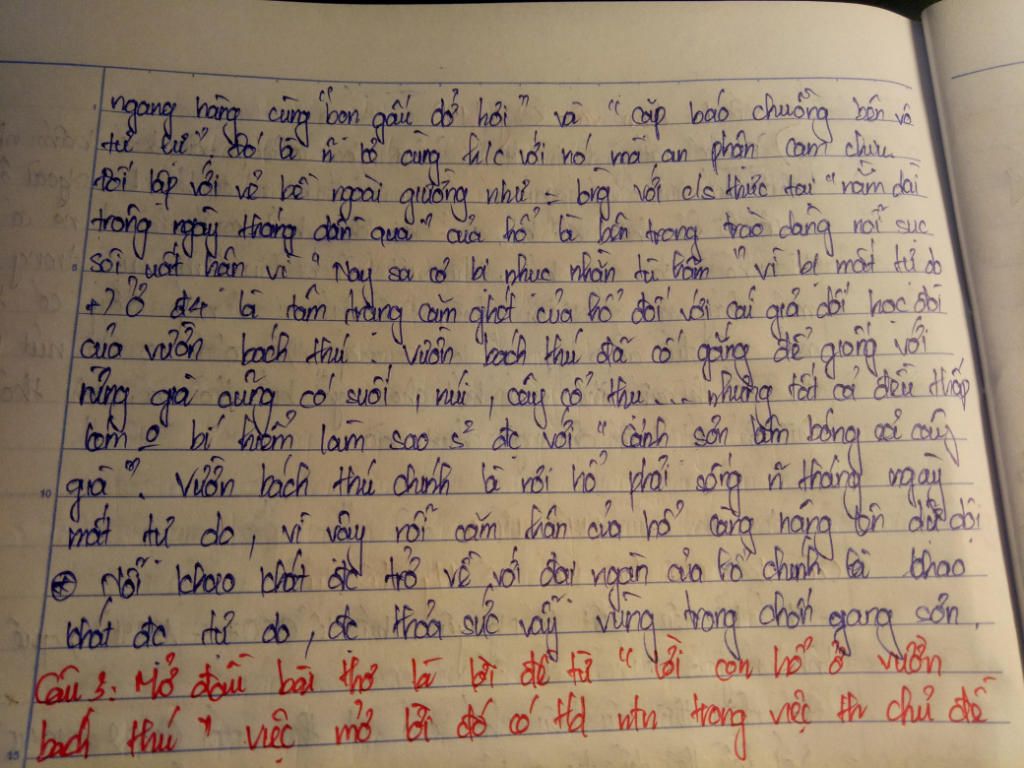 ngang hàng cùng "bọn gấu dở hơi" và " cặp báo chuồng bên vô
tư lự". Đó là ~n kẻ cùng với nó mà an phận cam chịu.
Đối lập với vẻ bề ngoài giường như = lặng với c/s thực tại "nằm dài
trông ngày tháng dần qua" của hổ là bên trong trào dâng nỗi sục
sôi uất hận vì "Nay sa cơ bị nhục nhằn tù hãm" vì bị mất tự do
+) Ở đ4 là tâm trạng căm ghét của hổ đối với cái giả dối học đòi
của vườn bách thú. vườn bách thú đã cố gắng để giống với
rừng già cũng có suối, núi, cây cổ thụ... nhưng tất cả đều thấp
kém o bí hiểm làm sao s² đc với "Cảnh sơn lâm bóng cả cây
già". Vườn bách thú chính là nơi hổ phải sống ~n tháng ngày
mất tự do, vì vậy nỗi căm hờn của hổ càng nặng dữ dội
* Nỗi khao khát đc trở về với đại ngàn của hổ chính là khao
khát đc tự do, đc thỏa sức vẫy vùng trong chốn giang sơn.
Câu 3: Mở đầu bài thơ là lời đề từ "lời con hổ ở vườn
bách thú" việc mở lời đó có td ntn trong việc th chủ đề